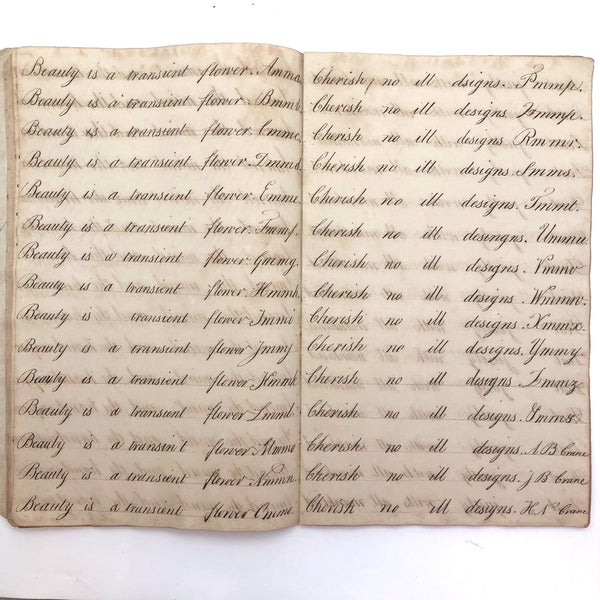 Beauty is a transient flower. Amma
Beauty is a transient flower. Bmmb
Beauty is a transient flower. Cmmc
Beauty is a transient flower. Dmmd.
Beauty is a transient flower. Emme
Beauty is a transient flower. Fmmf.
Beauty is a transient flower. Gmmg.
Beauty is a transient flower. Hmmh
Beauty is transient flower. Immi
Beauty is a transient flower Jmmj
Beauty is a transient flower. Kmmk
Beauty is a transient flower Lmml
Beauty is a transin t flower Mmmo
Beauty is a transient flower Nmmn
Beauty is a transient flower Ommo
Cherish, no ill dsigns. Pmmp.
Cherish no ill designs.
Cherish no ill designs. Rmmr.
Cherish no ill designs. Smms.
Cherish no ill designs. Tmmt.
Cherish no ill desingns. Ummu
Cherish no ill designs. Vmmv
Cherish no ill designs. Wmmw.
Cherish no ill designs. Xmmx.
Cherish no ill designs. Ymmy.
Cherish no ill designs. Zmmz
Cherish no ill designs.
Cherish no ill designs. A B Crane
Cherish no ill designs. J B Crane
Cherish no ill designs. H N Crane